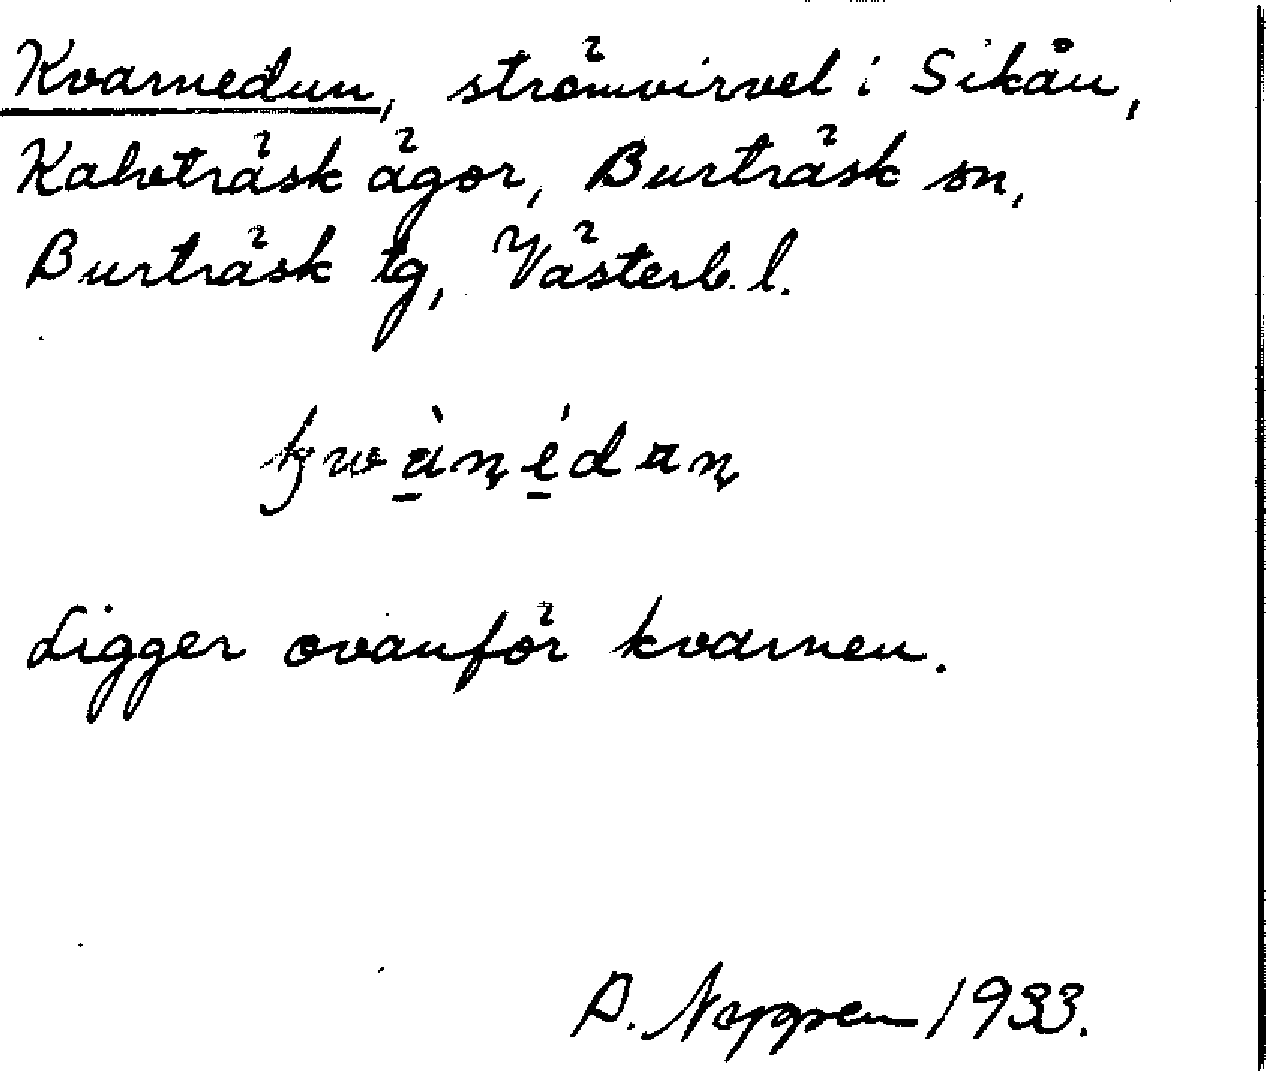 Kvarnedun, strömvirvel i Sikån,
Kalvträsk ägor, Burträsk sn,
Burträsk tg, Västerb. l.
Ligger ovanför kvarnen.
D. Nygren 1933.